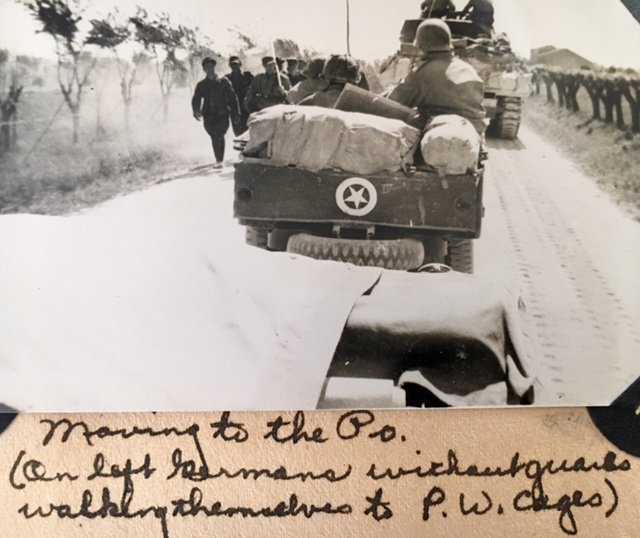 Moving to the Po.
(On left Germans without guards
walking themselves to P. W. Cages)